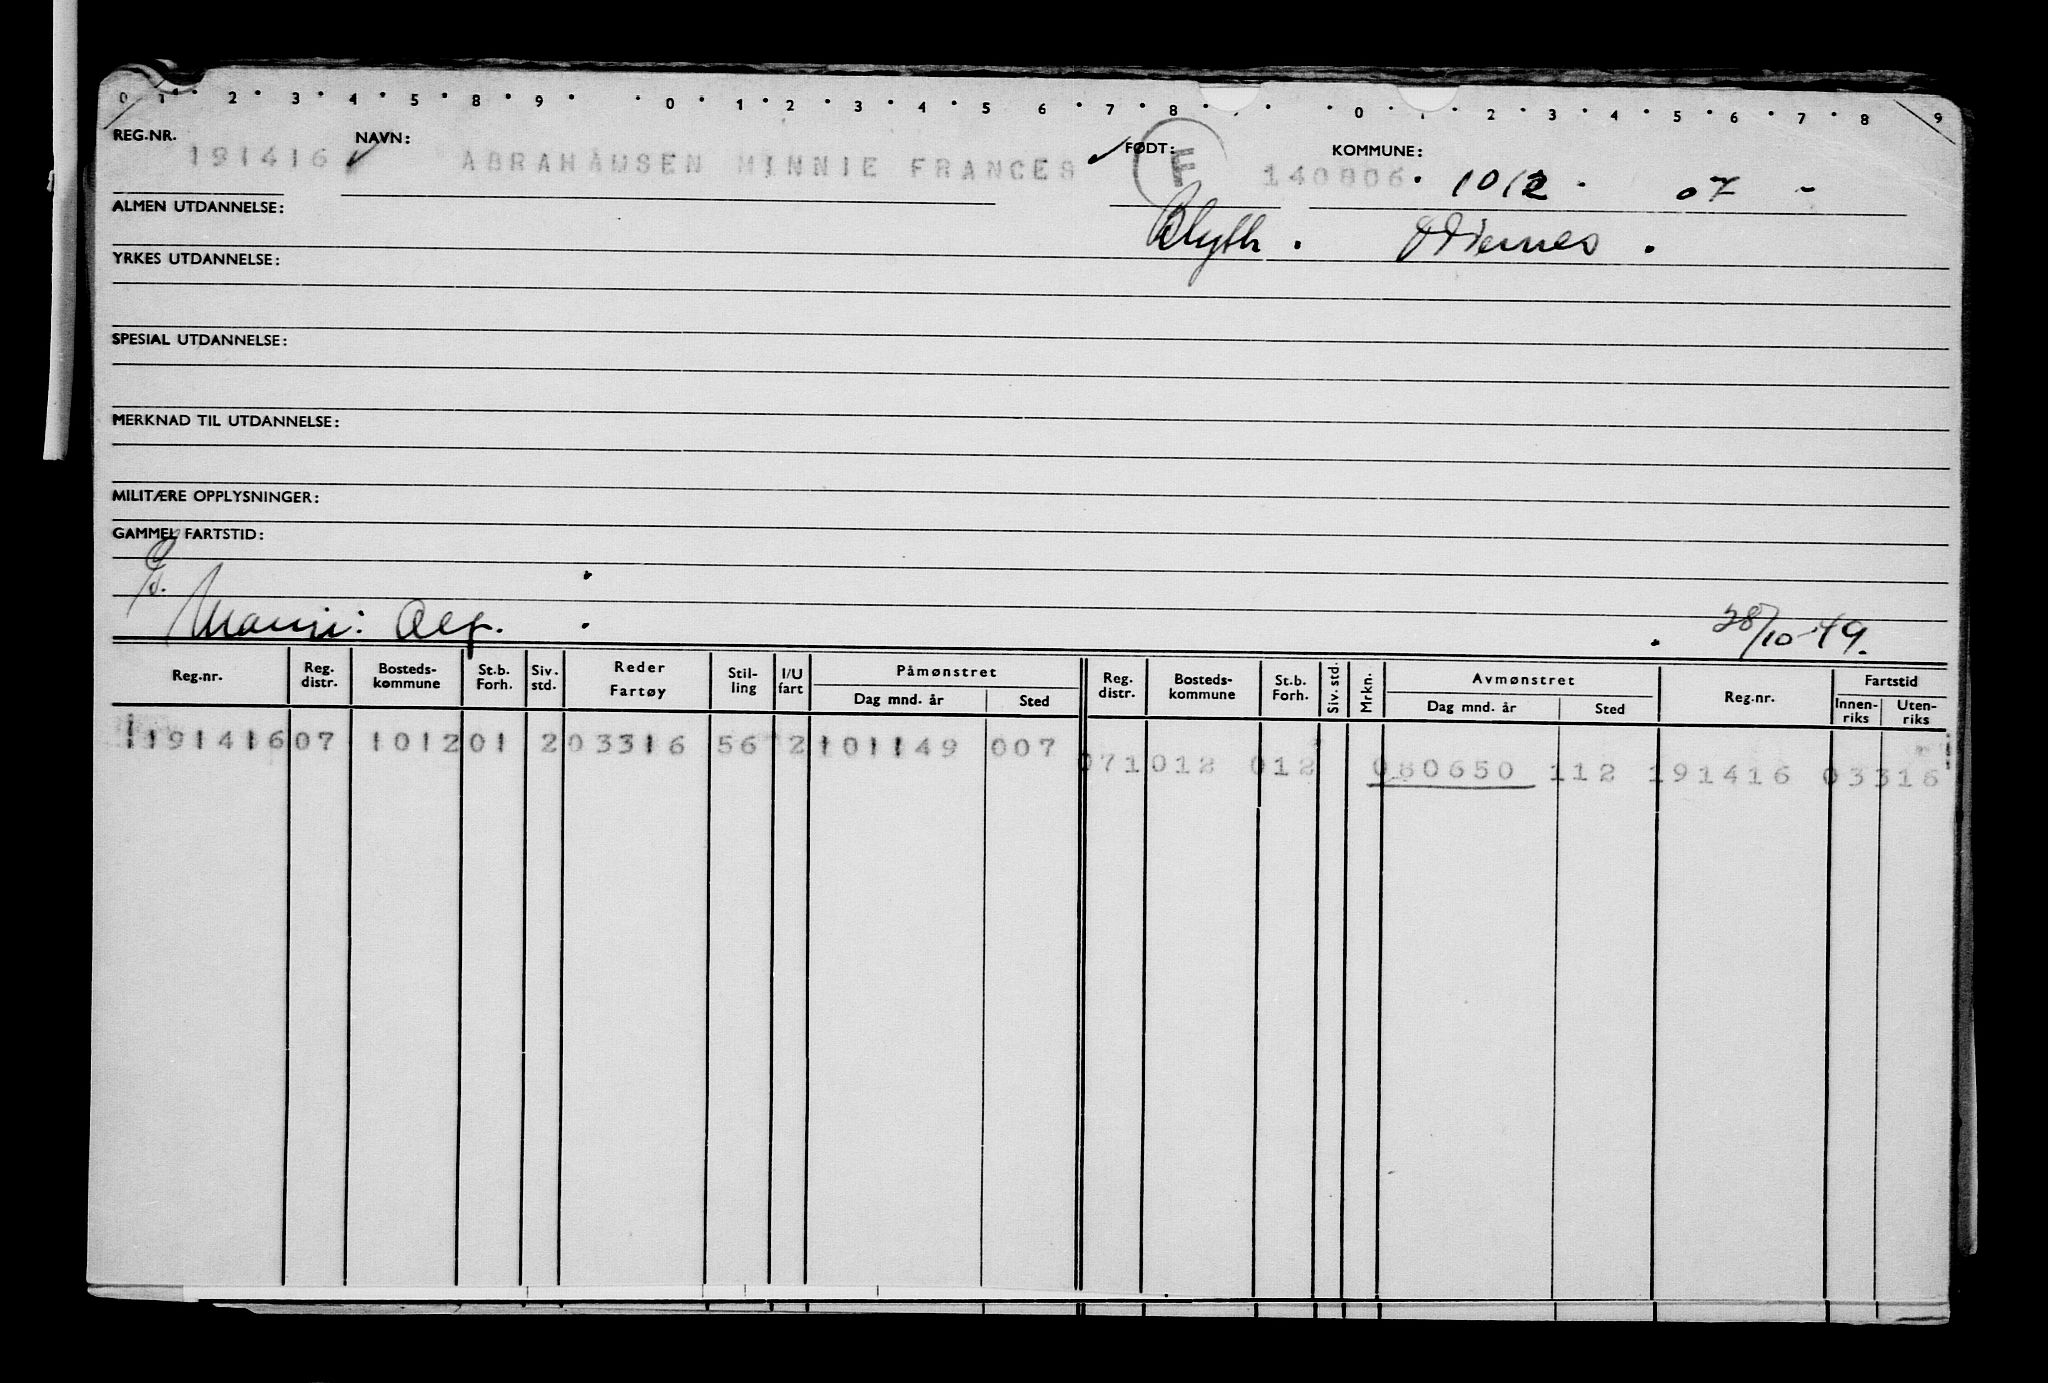 0 1 2 3 4 5 8 9 0 1 2 3 4 5 6 7 8 0 1 2 3 4 5 6 7 8 9
REG.NR. NAVN: FØDT: KOMMUNE:
191416 ABRAHAMSEN MINNIE FRANCES F 140806 1012 07 -
ALMEN UTDANNELSE: Blyth.
YRKES UTDANNELSE:
SPESIAL UTDANNELSE:
MERKNAD TIL UTDANNELSE:
MILITÆRE OPPLYSNINGER:
GAMMEL FARTSTID:
28/10-49.
Reg.nr. Reg. distr. Bosteds-kommune St.b. Forh. Siv. std. Reder Fartøy Stil-ling I/U fart Påmønstret Dag mnd. år Sted Reg. distr. Bosteds-kommune St.b. Forh. Siv. std. Mrkn. Avmønstret Dag mnd. år Sted Reg.nr. Fartstid Innen-riks Uten-riks
19141607 101201 203316 56 2101149 007
071012 012 080650 112 191416 03316